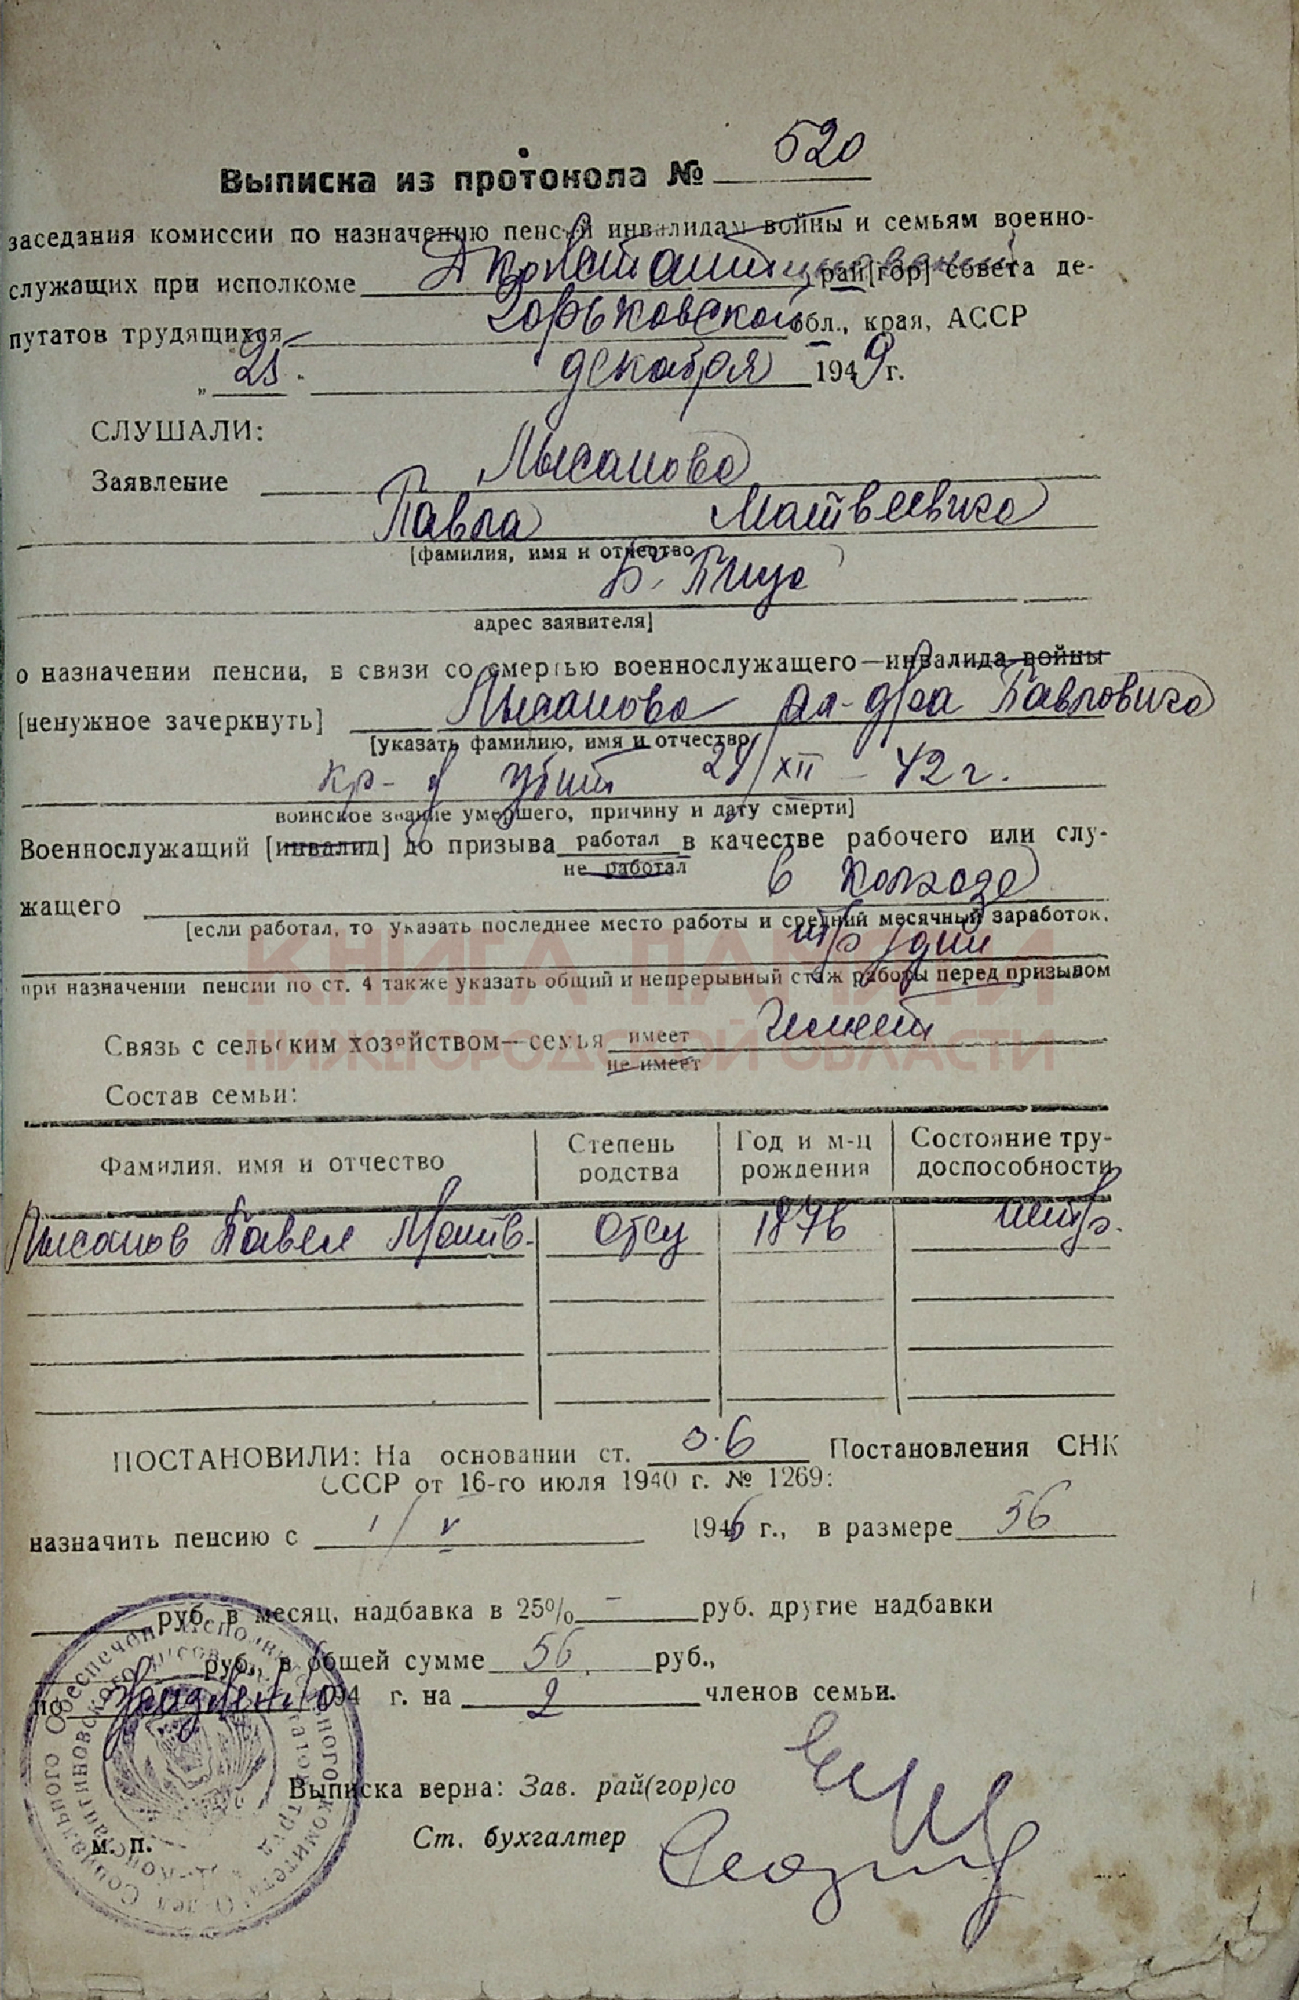 Выписка из протокола № 520
заседания комиссии по назначению пенсий инвалидам войны и семьям военно-
служащих при исполкоме Д Константиновский рай[гор] совета де-
путатов трудящихся Горьковской обл., края, АССР
„ 25. декабря 1949 г.
СЛУШАЛИ:
Заявление Лысанова
Павла Матвеевича
[фамилия, имя и отчество
Б. Пица
адрес заявителя]
о назначении пенсии, в связи со смертью военнослужащего—инвалида войны
[ненужное зачеркнуть] Лысанова Ал-дра Павловича
[указать фамилию, имя и отчество
кр-ц убит 24/XII - 42 г.
воинское звание умершего, причину и дату смерти]
Военнослужащий [инвалид] до призыва работал в качестве рабочего или слу-
не работал
жащего в колхозе
[если работал, то указать последнее место работы и средний месячный заработок,
тр/дни
при назначении пенсии по ст. 4 также указать общий и непрерывный стаж работы перед призывом
КНИГА ПАМЯТИ
НИЖЕГОРОДСКОЙ ОБЛАСТИ
Связь с сельским хозяйством—семья имеет Имеет
не имеет
Состав семьи:
Фамилия, имя и отчество Степень родства Год и м-ц рождения Состояние тру-доспособности
Лысанов Павел Матв. отец 1876 нетр.
ПОСТАНОВИЛИ: На основании ст. 6 Постановления СНК
СССР от 16-го июля 1940 г. № 1269:
назначить пенсию с 1/V 1946 г., в размере 56
руб. в месяц, надбавка в 25% — руб. другие надбавки
руб., в общей сумме 56 руб.,
по 194 г. на 2 членов семьи.
Выписка верна: Зав. рай(гор)со
м. п. Ст. бухгалтер